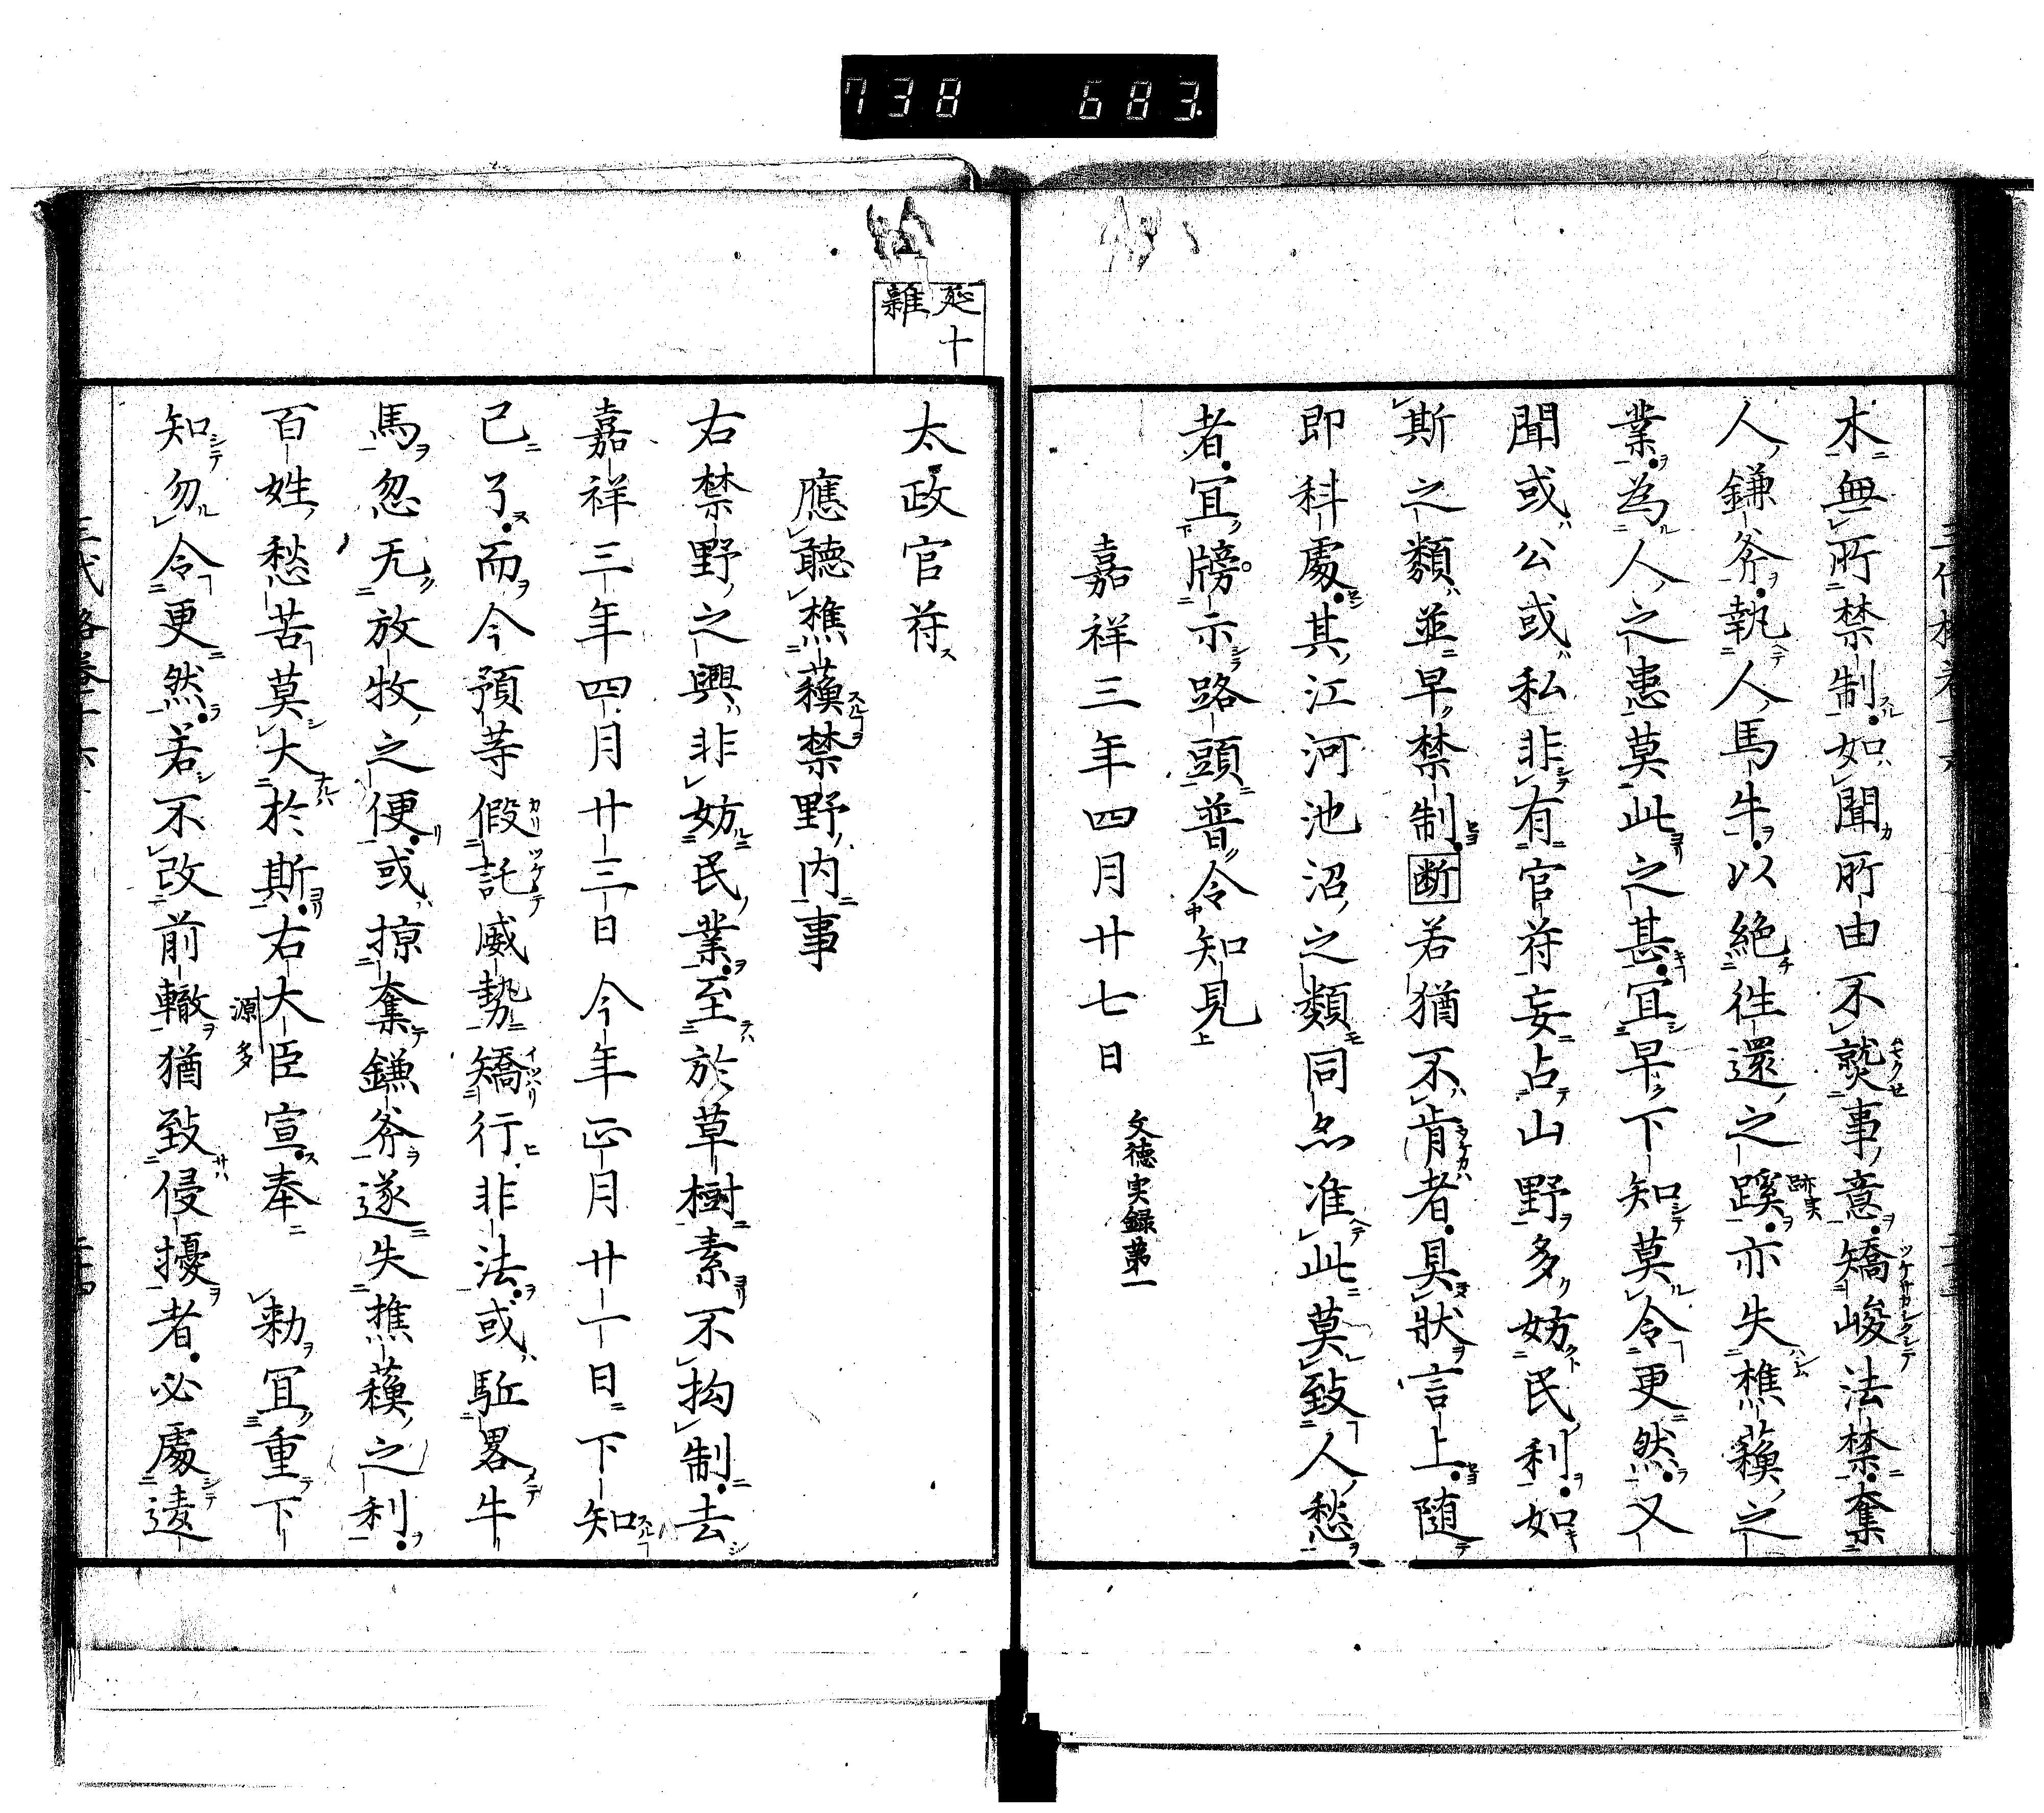 738 683
木無所禁制如聞所由不熨事意矯峻法禁奪
人鎌斧執人馬牛以絶往還之蹊亦失樵蘓之
業為人之患莫此之甚冝早下知莫令更然又
聞或公或私非有官符妄占山野多妨民利如
斯之類並早禁制断若猶不肯者具狀言上随
即科處其江河池沼之類同亦准此莫致人愁
者冝牓示路頭普令知見
嘉祥三年四月廿七日 文徳実録第一
延十
雜
太政官符
應聽樵蘓禁野内事
右禁野之興非妨民業至於草樹素不拘制去
嘉祥三年四月廿三日今年正月廿一日下知
已了而今預等假託威勢矯行非法或駈畧牛
馬忽无放牧之便或掠奪鎌斧遂失樵蘓之利
百姓愁苦莫大於斯右大臣宣奉 勅冝重下
源多
知勿令更然若不改前轍猶致侵擾者必處違